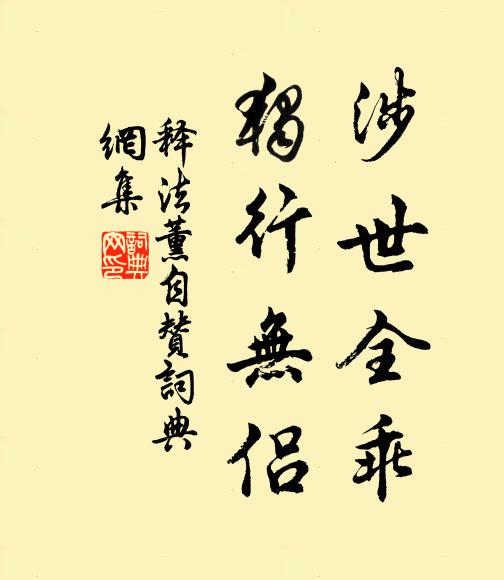 涉世全乖
獨行無侶
释法薰自赞詞典
網集
詞典
网印